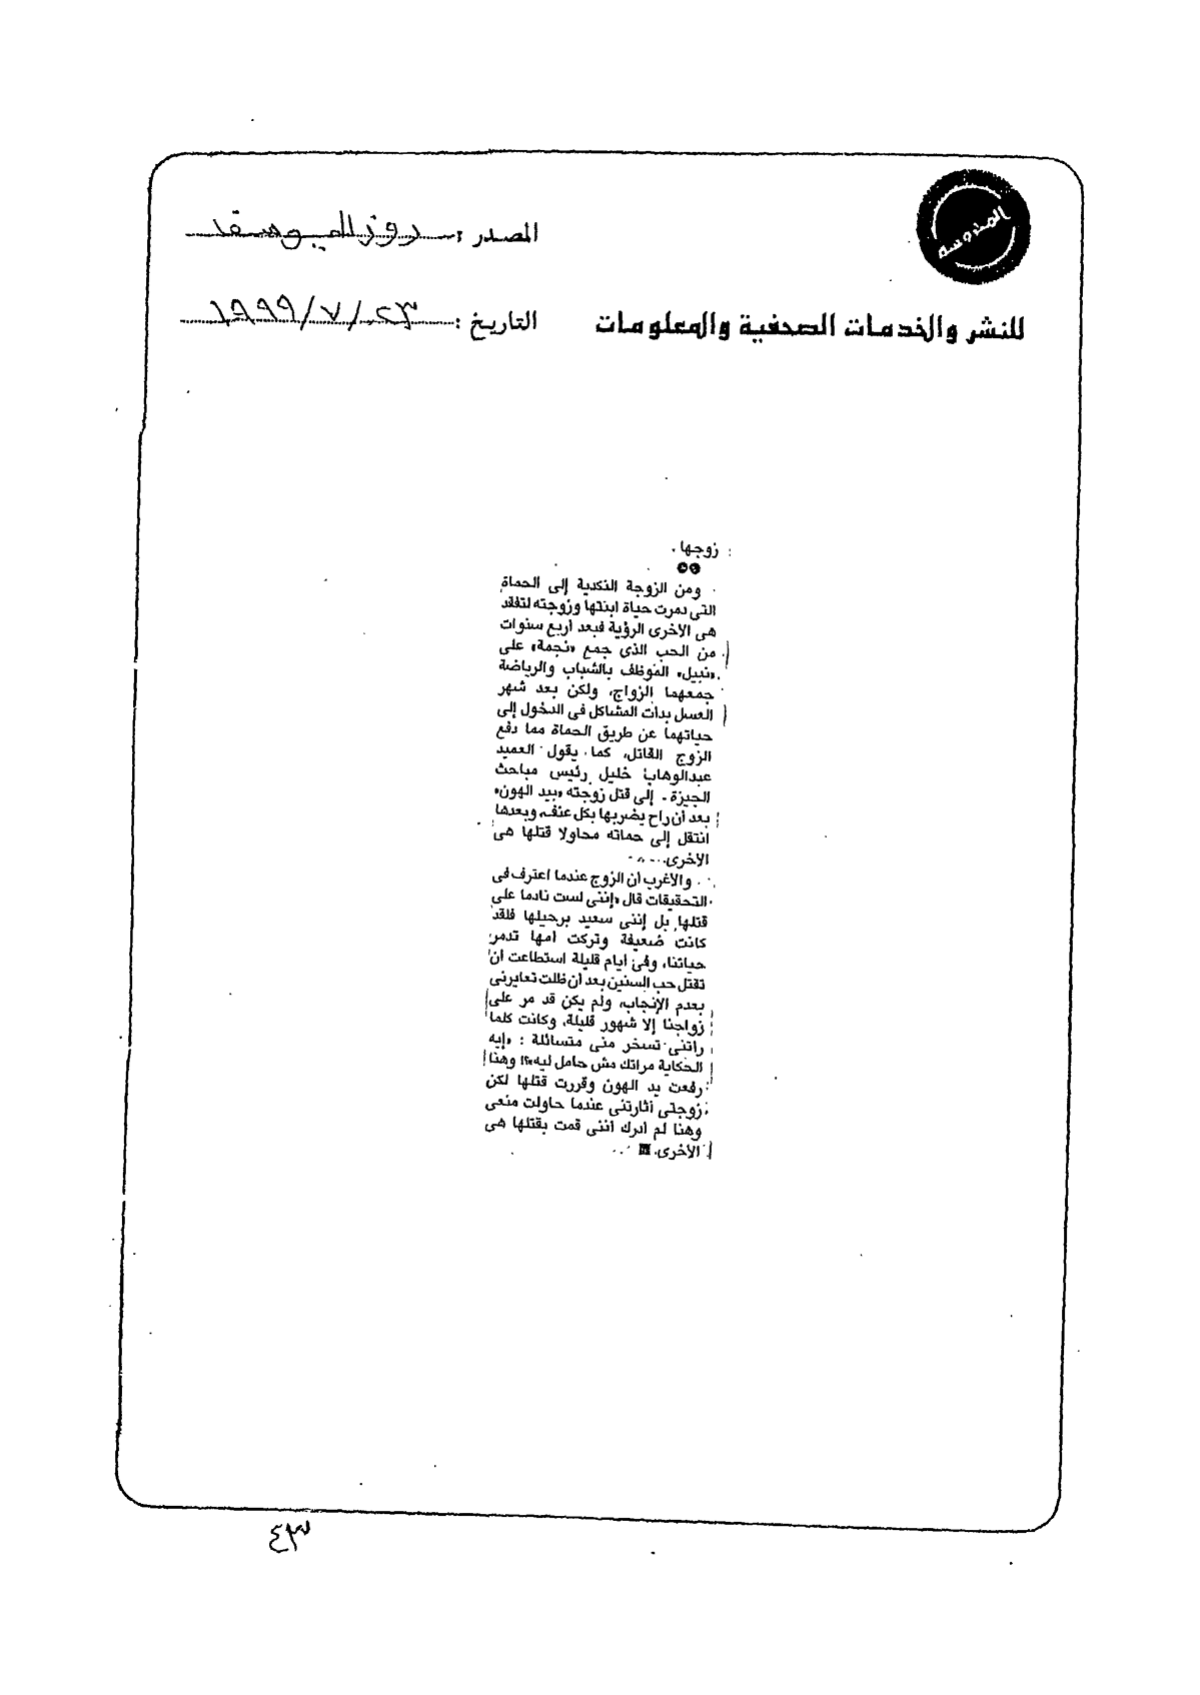 المحروسة
المصدر : روز اليوسف
للنشر والخدمات الصحفية والمعلومات
التاريخ : ٢٣ / ٧ / ١٩٩٩
زوجها .
ومن الزوجة النكدية إلى الحماة
التى دمرت حياة ابنتها وزوجته لتفقد
هى الأخرى الرؤية فبعد أربع سنوات
من الحب الذى جمع «نجمة» على
«نبيل» الموظف بالشباب والرياضة
جمعهما الزواج، ولكن بعد شهر
العسل بدأت المشاكل فى الدخول إلى
حياتهما عن طريق الحماة مما دفع
الزوج القاتل، كما يقول العميد
عبدالوهاب خليل رئيس مباحث
الجيزة - إلى قتل زوجته «بيد الهون»
بعد أن راح يضربها بكل عنف، وبعدها
انتقل إلى حماته محاولا قتلها هى
الأخرى.
والأغرب أن الزوج عندما اعترف فى
التحقيقات قال «إننى لست نادما على
قتلها بل إننى سعيد برحيلها فلقد
كانت ضعيفة وتركت أمها تدمر
حياتنا، وفى أيام قليلة استطاعت أن
تقتل حب السنين بعد أن ظلت تعايرنى
بعدم الإنجاب، ولم يكن قد مر على
زواجنا إلا شهور قليلة، وكانت كلما
رأتنى تسخر منى متسائلة : «إيه
الحكاية مراتك مش حامل ليه»؟! وهنا
رفعت يد الهون وقررت قتلها لكن
زوجتى أثارتنى عندما حاولت منعى
وهنا لم أدرك أننى قمت بقتلها هى
الأخرى.
٤٣